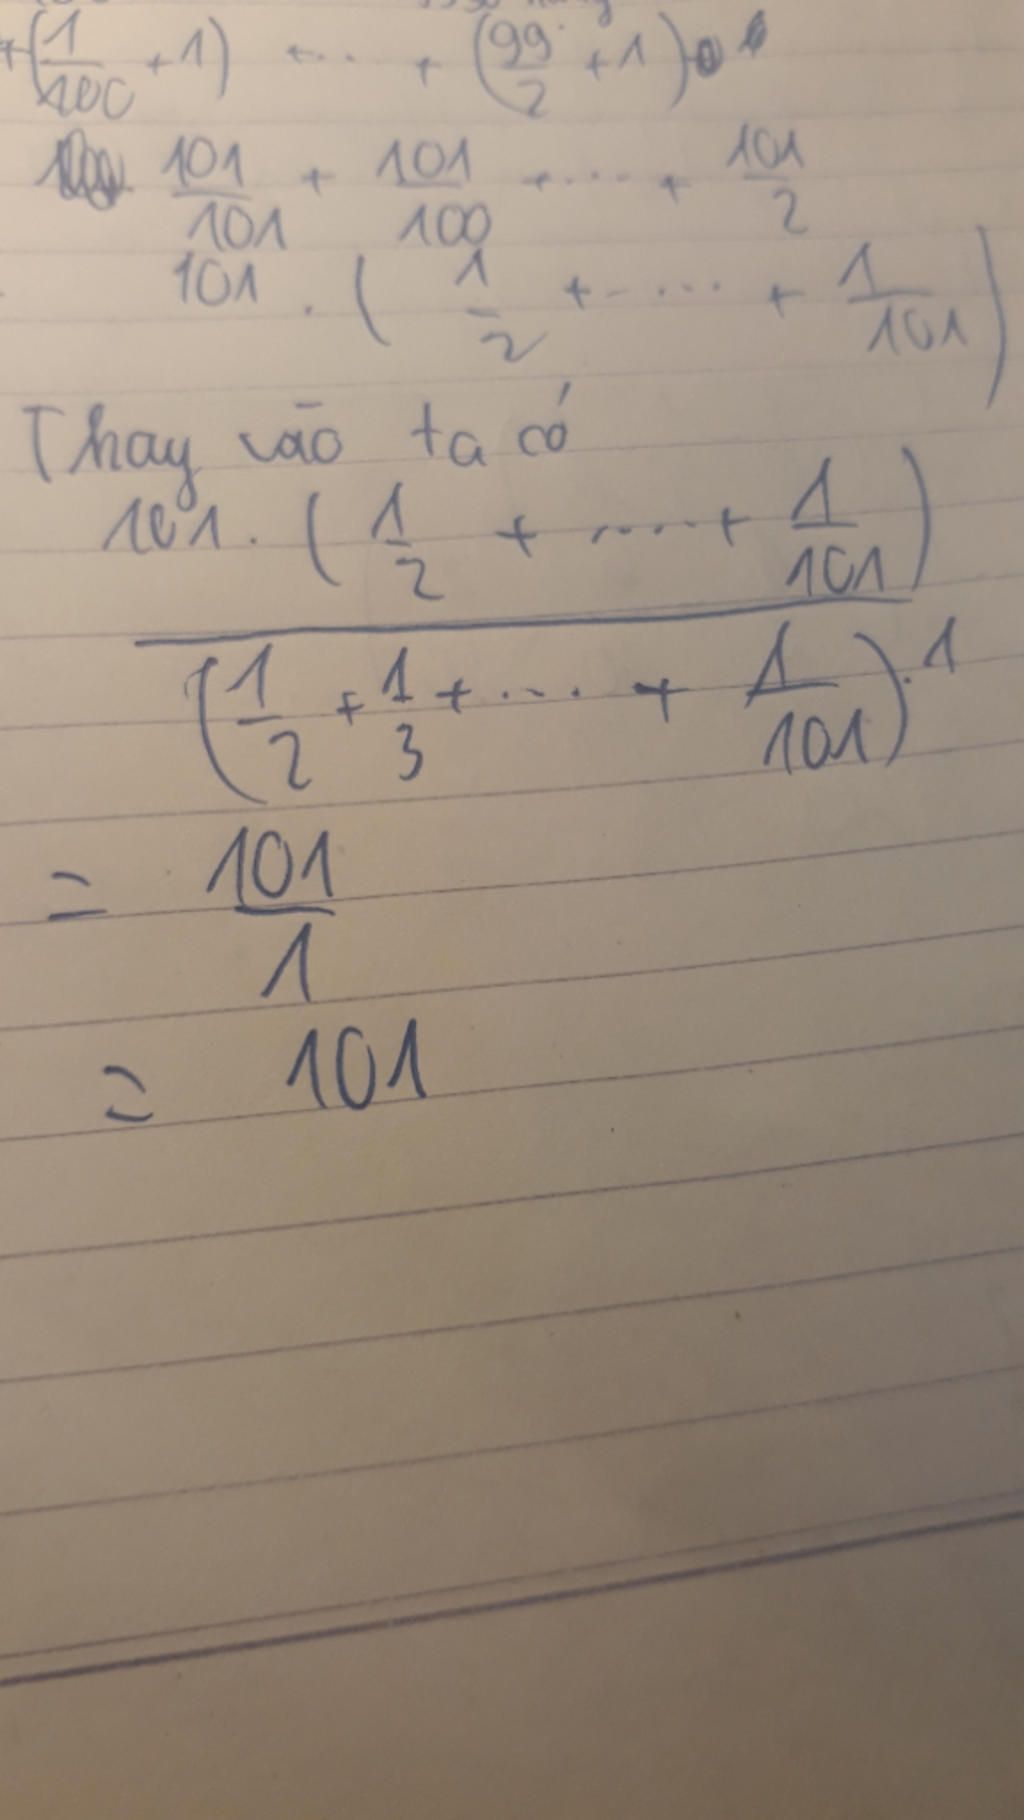 +(1/100 + 1) + ... + (99/2 + 1)
101/101 + 101/100 + ... + 101/2
101 . (1/2 + ... + 1/101)
Thay vão ta có
101 . (1/2 + ... + 1/101)
(1/2 + 1/3 + ... + 1/101) . 1
= 101/1
= 101